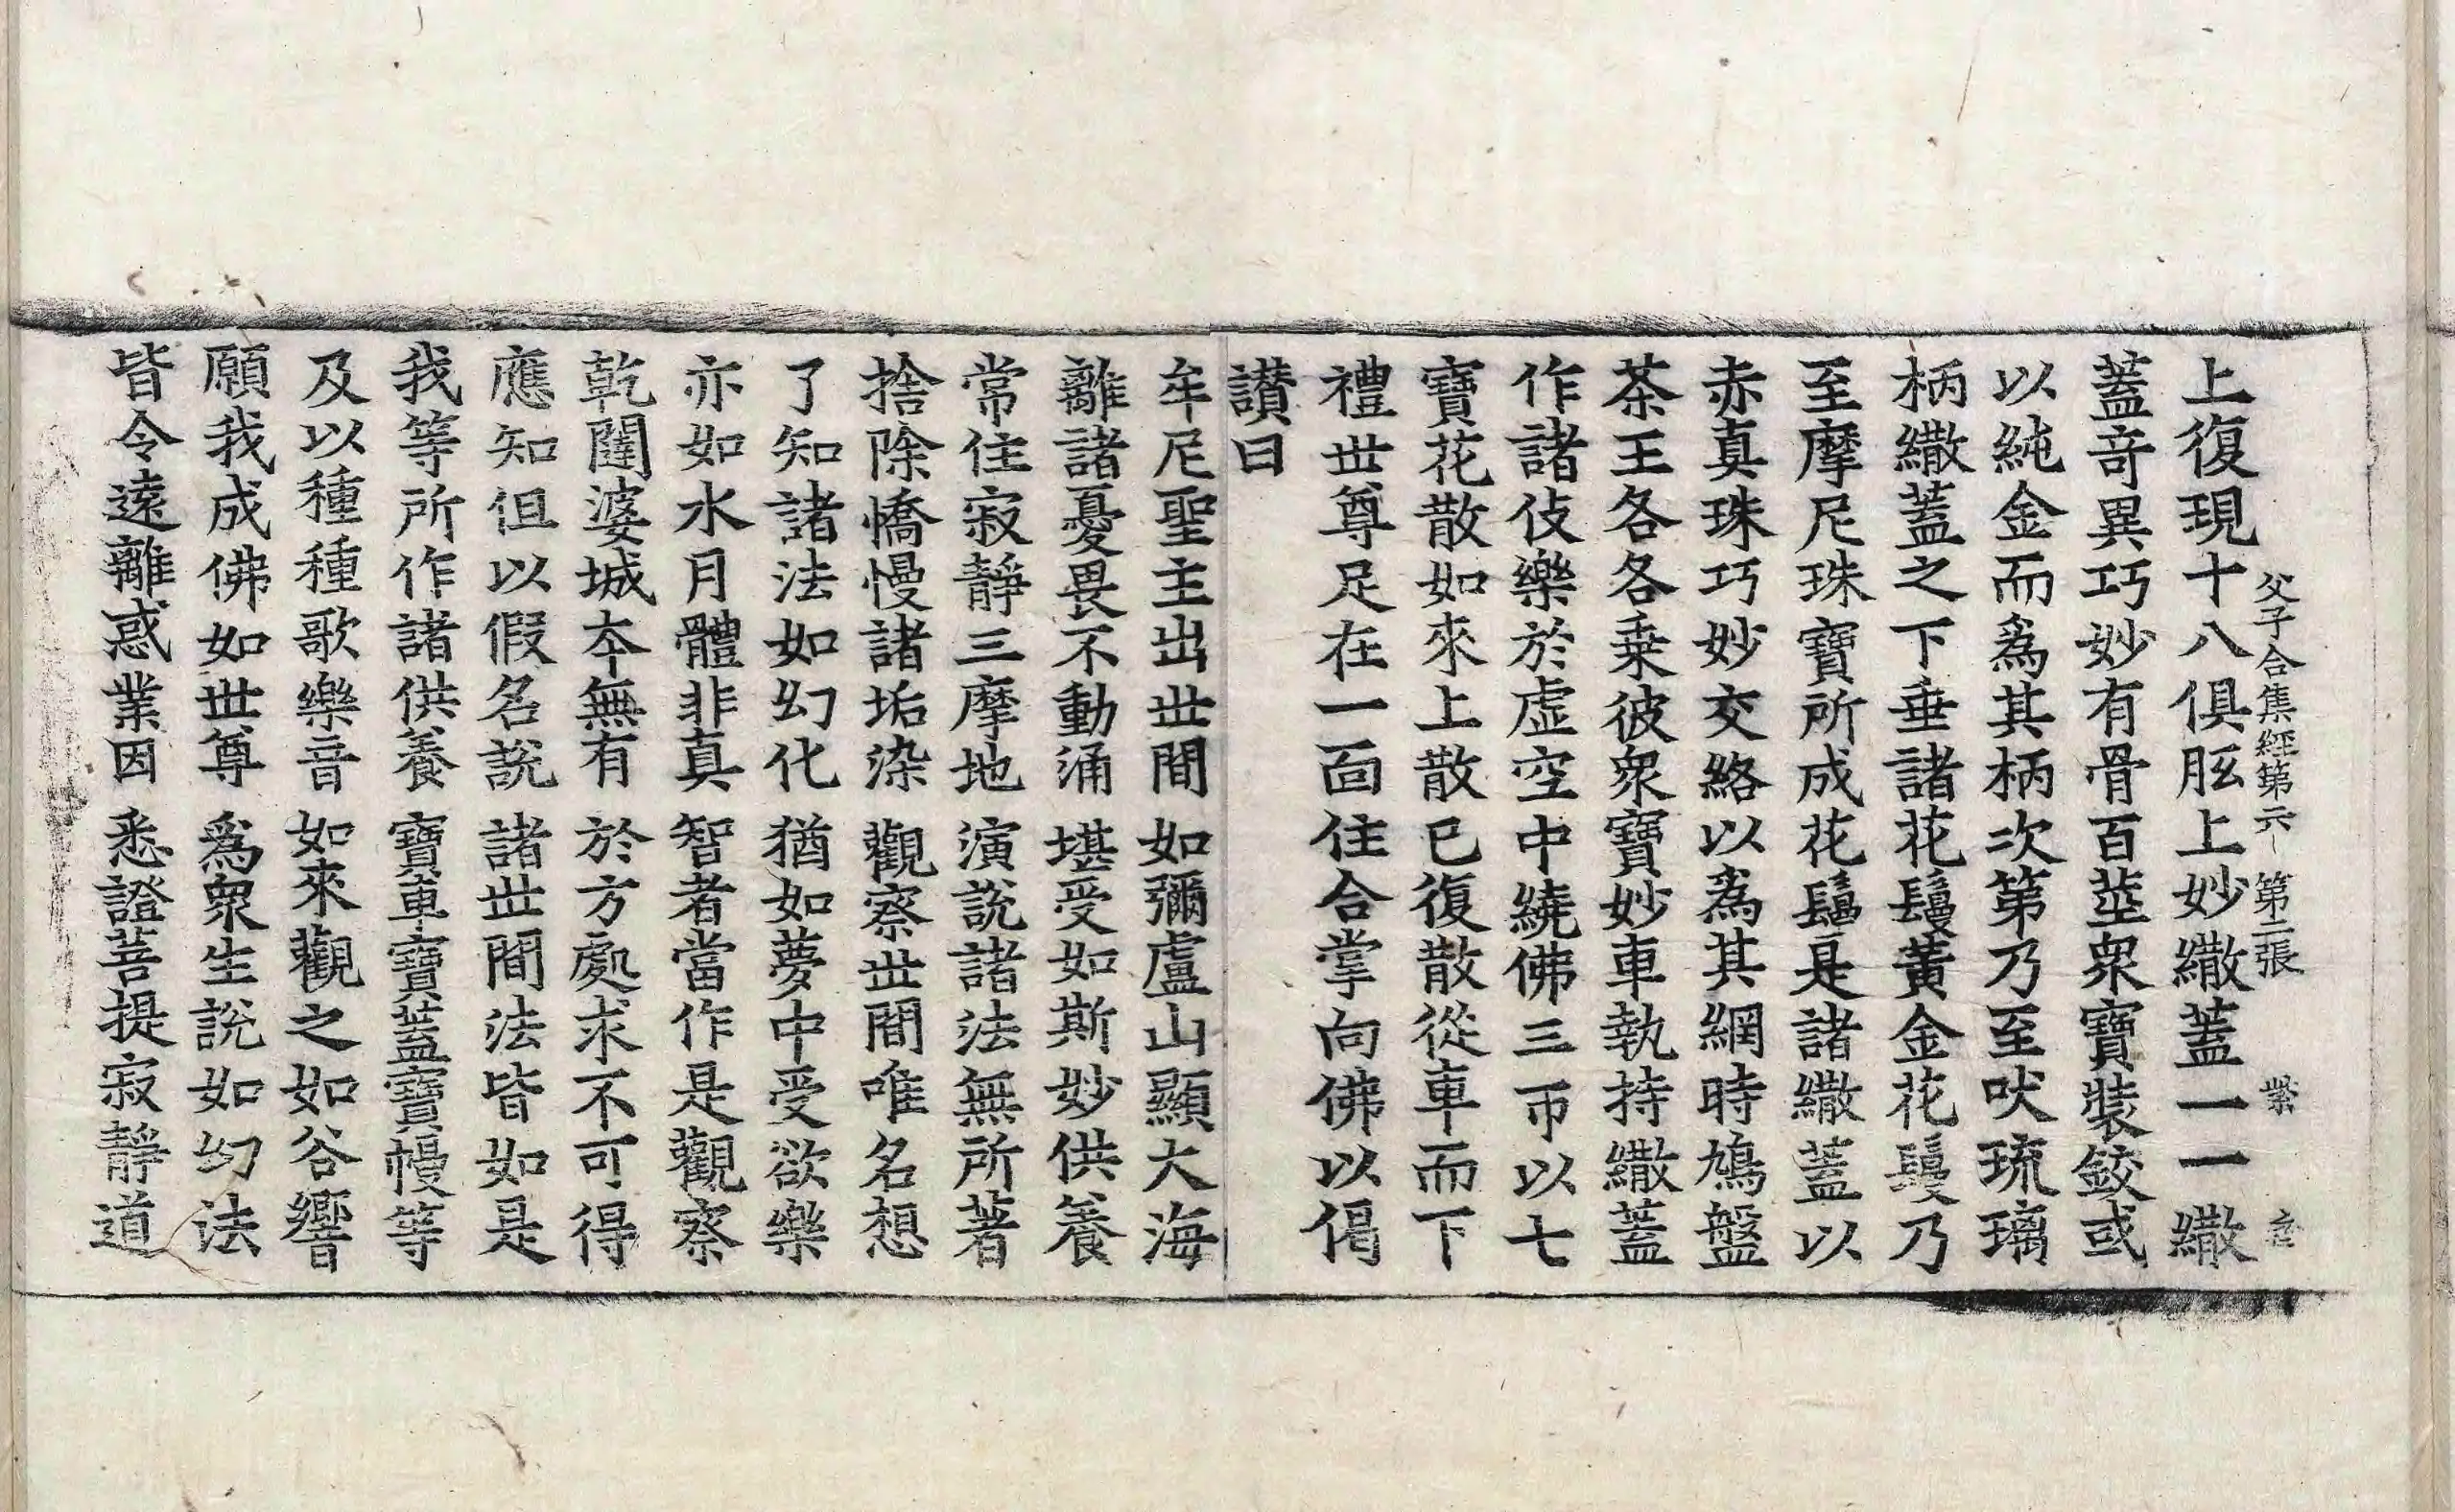 上復現十八俱胝上妙繖蓋一一繖
父子合集經第六 第二張 縶
蓋竒異巧妙有骨百莖衆寶裝鉸或
以純金而爲其柄次第乃至吠琉璃
柄繖蓋之下垂諸花鬘黃金花鬘乃
至摩尼珠寶所成花鬘是諸繖蓋以
赤真珠巧妙交絡以爲其網時鳩盤
茶王各各乗彼衆寶妙車執持繖蓋
作諸伎樂於虛空中繞佛三帀以七
寶花散如來上散已復散從車而下
禮世尊足在一面住合掌向佛以偈
讃曰
牟尼聖主出世間 如彌盧山顯大海
離諸憂畏不動涌 堪受如斯妙供養
常住寂靜三摩地 演說諸法無所著
捨除憍慢諸垢染 觀察世間唯名想
了知諸法如幻化 猶如夢中受欲樂
亦如水月體非真 智者當作是觀察
乾闥婆城夲無有 於方處求不可得
應知但以假名說 諸世間法皆如是
我等所作諸供養 寶車寶蓋寶幔等
及以種種歌樂音 如來觀之如谷響
願我成佛如世尊 爲衆生說如幻法
皆令遠離惑業因 悉證菩提寂靜道